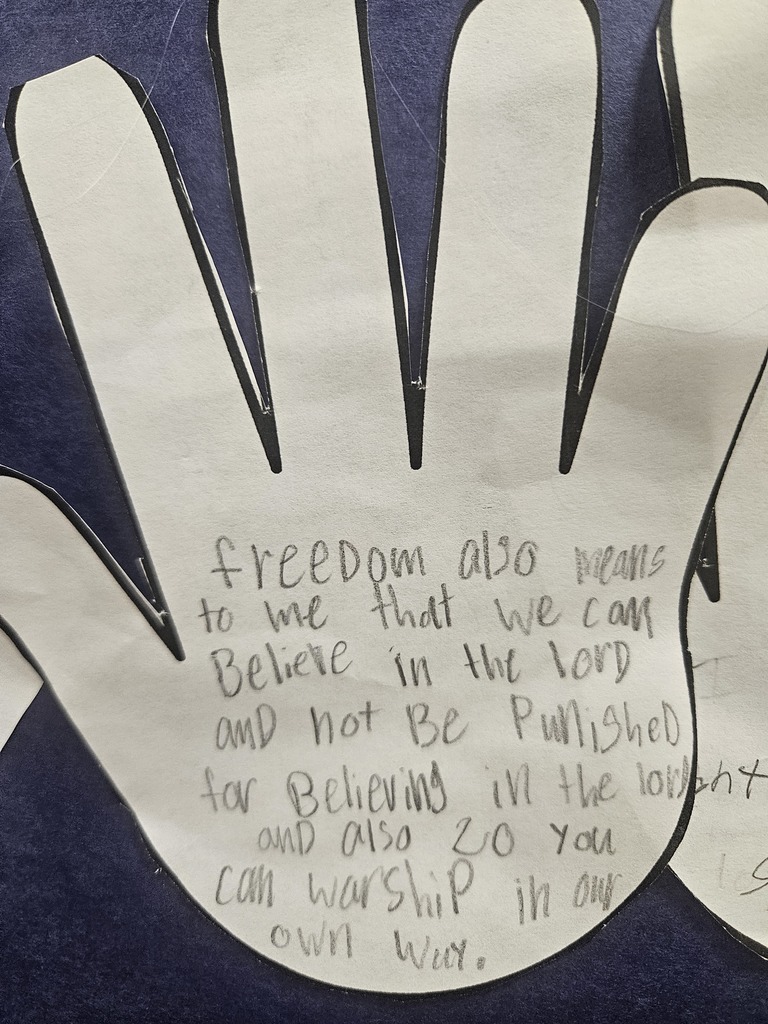 freeDom also means
to me that we can
Believe in the lorD
anD not Be PunisheD
for Believing in the lorD
anD also 20 you
can warship in our
own way.
ht